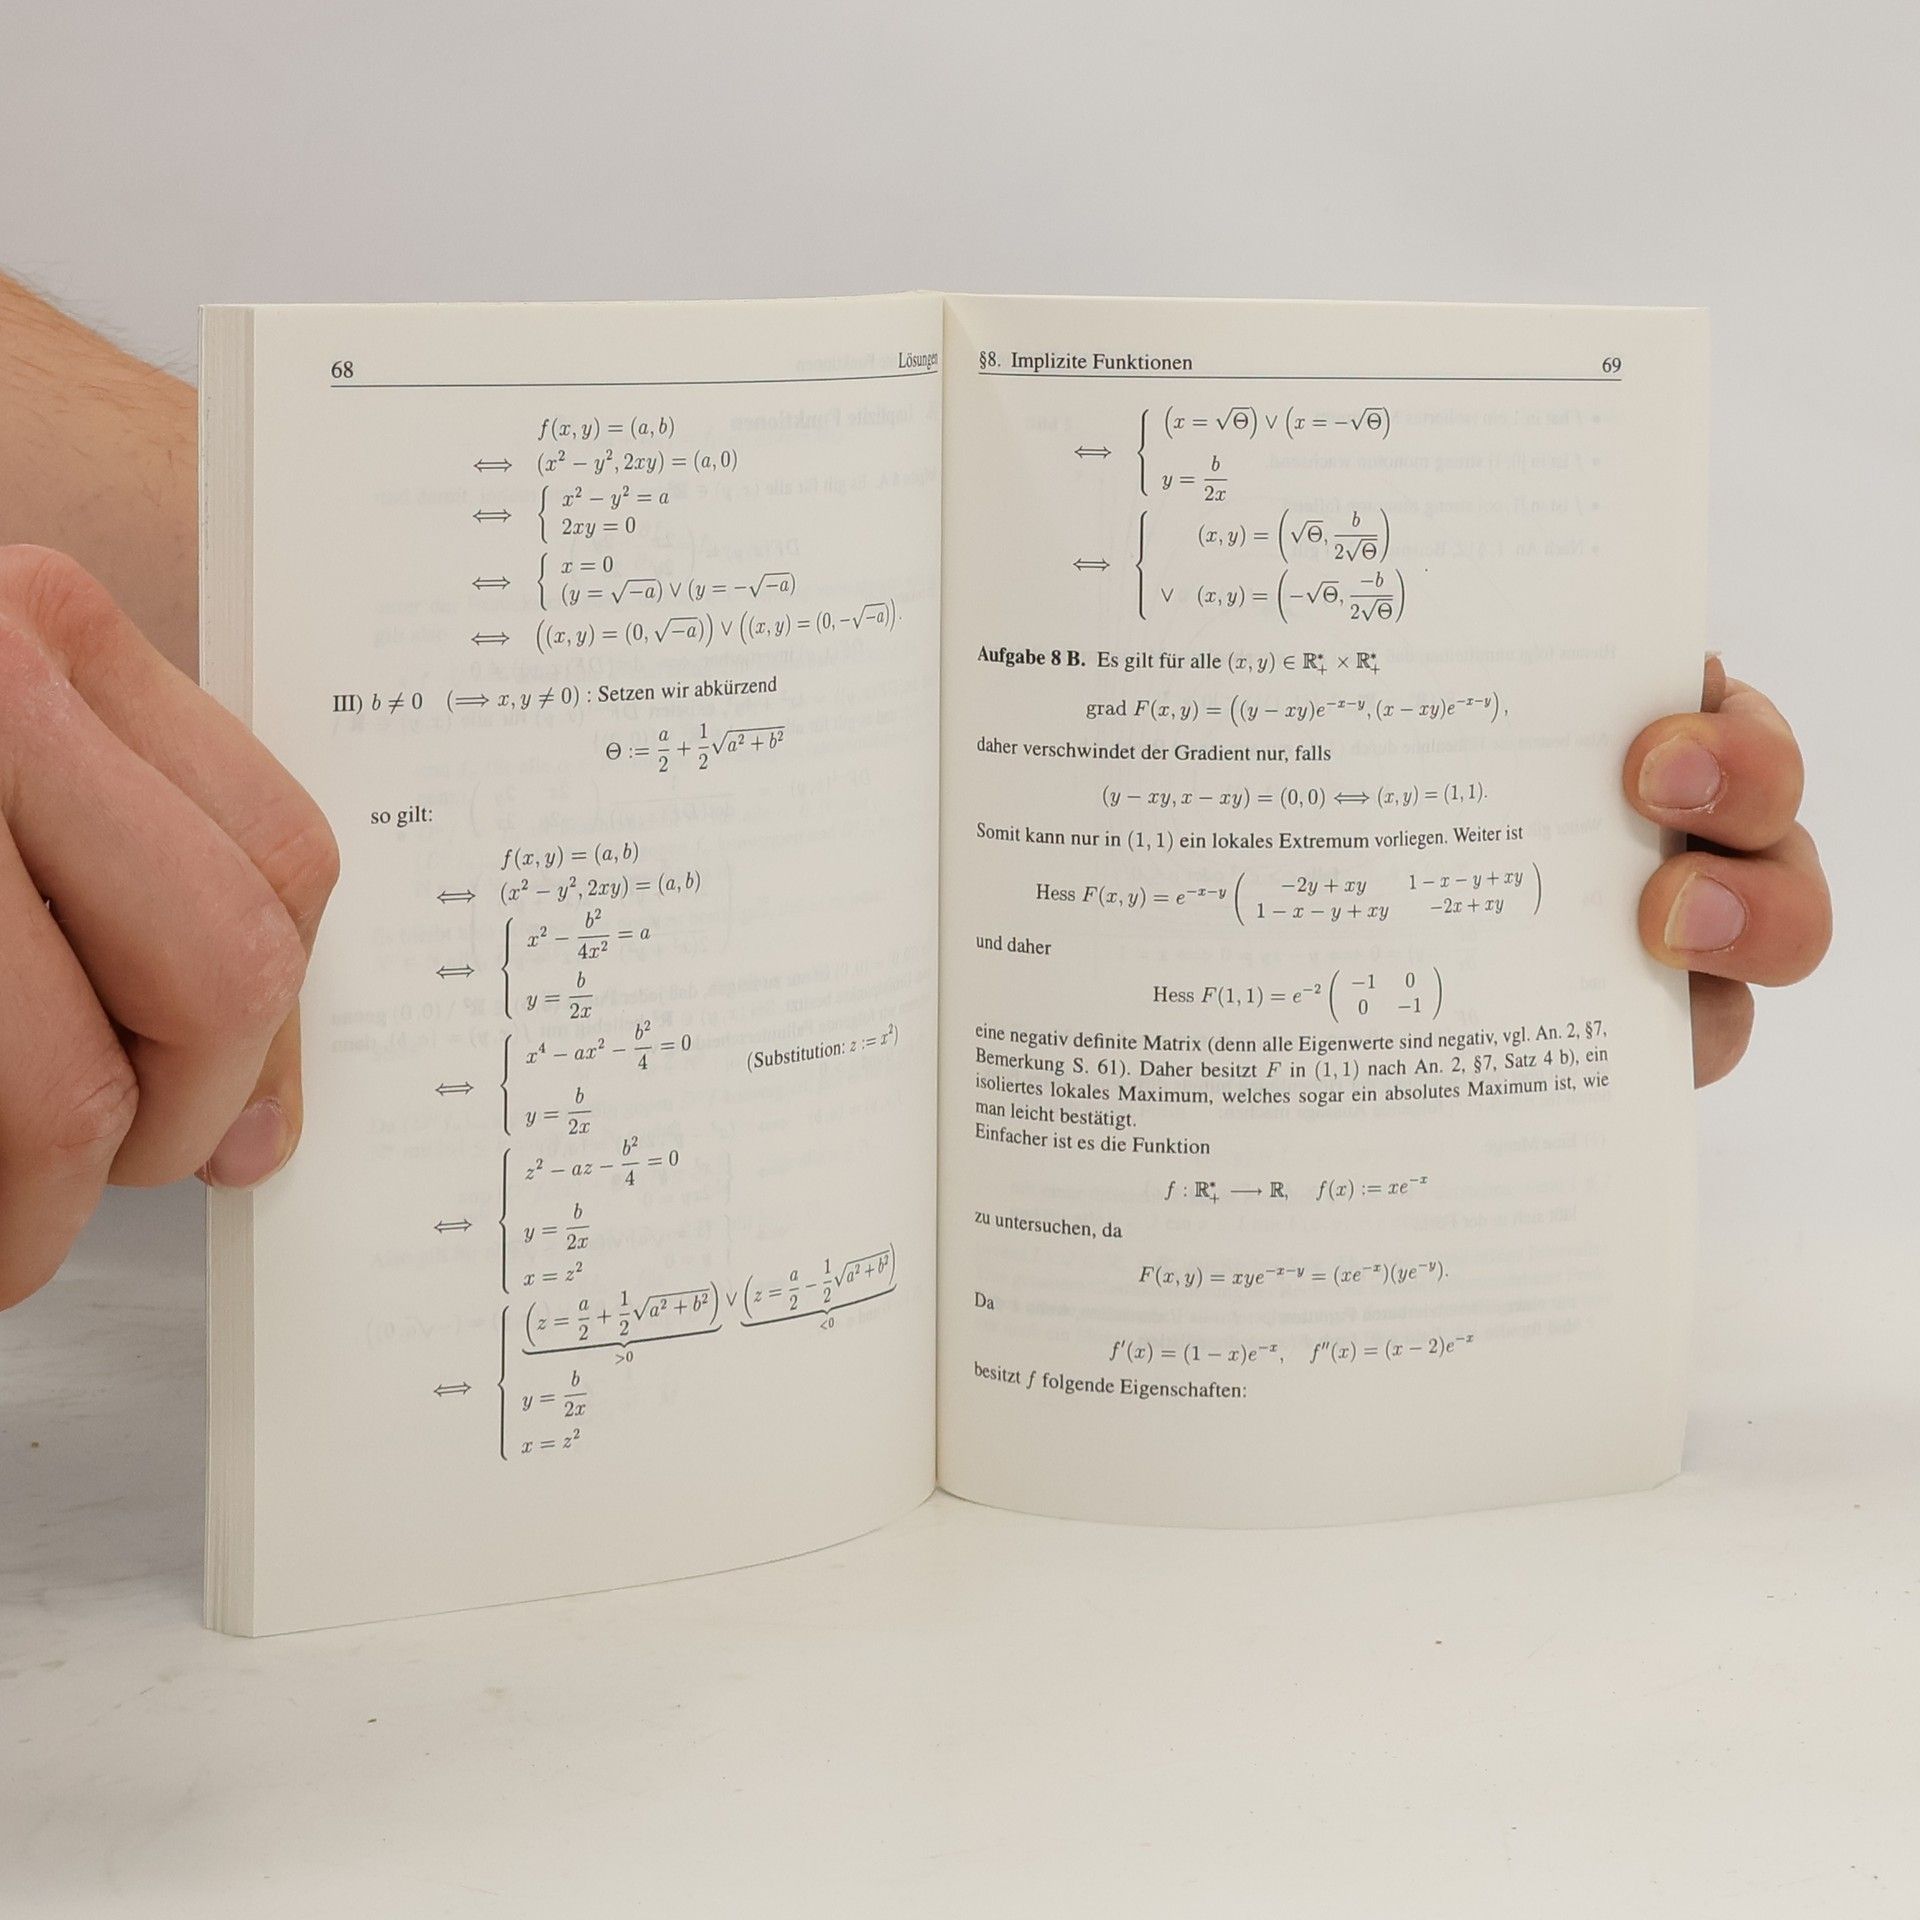 68 Lösungen
f(x, y) = (a, b)
⟺ (x² − y², 2xy) = (a, 0)
⟺ { x² − y² = a
2xy = 0
⟺ { x = 0
(y = √−a) ∨ (y = −√−a)
⟺ ((x, y) = (0, √−a)) ∨ ((x, y) = (0, −√−a)).
III) b ≠ 0 (⟹ x, y ≠ 0) : Setzen wir abkürzend
Θ := a/2 + 1/2 √(a² + b²)
so gilt:
f(x, y) = (a, b)
⟺ (x² − y², 2xy) = (a, b)
⟺ { x² − b²/4x² = a
y = b/2x
⟺ { x⁴ − ax² − b²/4 = 0 (Substitution: z := x²)
y = b/2x
⟺ { z² − az − b²/4 = 0
y = b/2x
x = z²
⟺ { (z = a/2 + 1/2 √(a² + b²)) ∨ (z = a/2 − 1/2 √(a² + b²))
>0 <0
y = b/2x
x = z²
§8. Implizite Funktionen 69
⟺ { (x = √Θ) ∨ (x = −√Θ)
y = b/2x
⟺ { (x, y) = (√Θ, b/2√Θ)
∨ (x, y) = (−√Θ, −b/2√Θ) .
Aufgabe 8 B. Es gilt für alle (x, y) ∈ ℝ*₊ × ℝ*₊
grad F(x, y) = ((y − xy)e^{−x−y}, (x − xy)e^{−x−y}),
daher verschwindet der Gradient nur, falls
(y − xy, x − xy) = (0, 0) ⟺ (x, y) = (1, 1).
Somit kann nur in (1, 1) ein lokales Extremum vorliegen. Weiter ist
Hess F(x, y) = e^{−x−y} ( −2y + xy 1 − x − y + xy
1 − x − y + xy −2x + xy )
und daher
Hess F(1, 1) = e^{−2} ( −1 0
0 −1 )
eine negativ definite Matrix (denn alle Eigenwerte sind negativ, vgl. An. 2, §7,
Bemerkung S. 61). Daher besitzt F in (1, 1) nach An. 2, §7, Satz 4 b), ein
isoliertes lokales Maximum, welches sogar ein absolutes Maximum ist, wie
man leicht bestätigt.
Einfacher ist es die Funktion
f : ℝ*₊ ⟶ ℝ, f(x) := xe^{−x}
zu untersuchen, da
F(x, y) = xye^{−x−y} = (xe^{−x})(ye^{−y}).
Da
f′(x) = (1 − x)e^{−x}, f″(x) = (x − 2)e^{−x}
besitzt f folgende Eigenschaften: